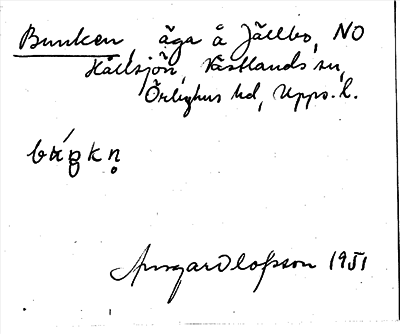 Bunken, äga å Jällbo, NO
Hållsjön, Västlands sn,
Örbyhus hd, Upps. l.
Ansgar Olofsson 1951